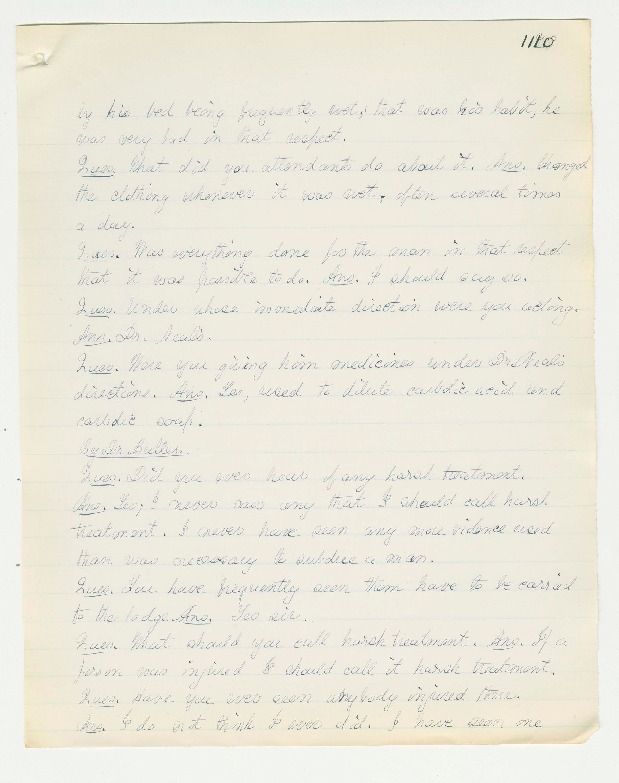 1110
by his bed being frequently wet, that was his habit, he
was very bad in that respect.
Ques. What did you attendants do about it. Ans. Changed
the clothing whenever it was wet, often several times
a day.
Ques. Was everything done for the man in that respect
that it was possible to do. Ans. I should say so.
Ques. Under whose immediate direction were you acting.
Ans. Dr. Neals.
Ques. Were you giving him medicines under Dr. Neals
directions. Ans. Yes, used to dilute carbolic acid and
carbolic soap.
By Dr. Butler.
Ques. Did you ever hear of any harsh treatment.
Ans. Yes, I never saw any that I should call harsh
treatment. I never have seen any more violence used
than was necessary to subdue a man.
Ques. You have frequently seen them have to be carried
to the lodge. Ans. Yes sir.
Ques. What should you call harsh treatment. Ans. If a
person was injured I should call it harsh treatment.
Ques. Have you ever seen anybody injured there.
Ans. I do not think I ever did. I have seen one